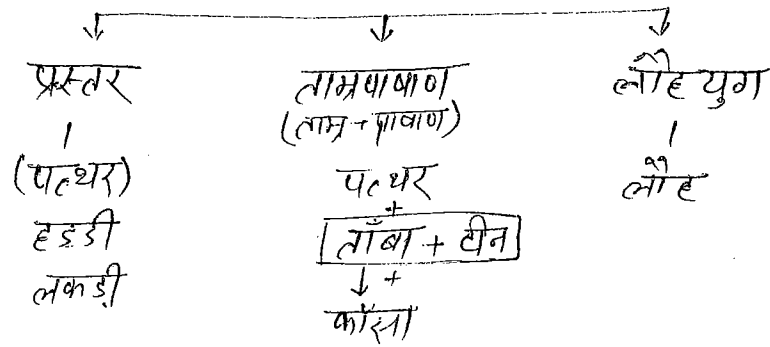 प्रस्तर
(पत्थर)
हड्डी
लकड़ी
ताम्रपाषाण
(ताम्र + पाषाण)
पत्थर
+
ताँबा + टीन
+
काँसा
लौह युग
लौह